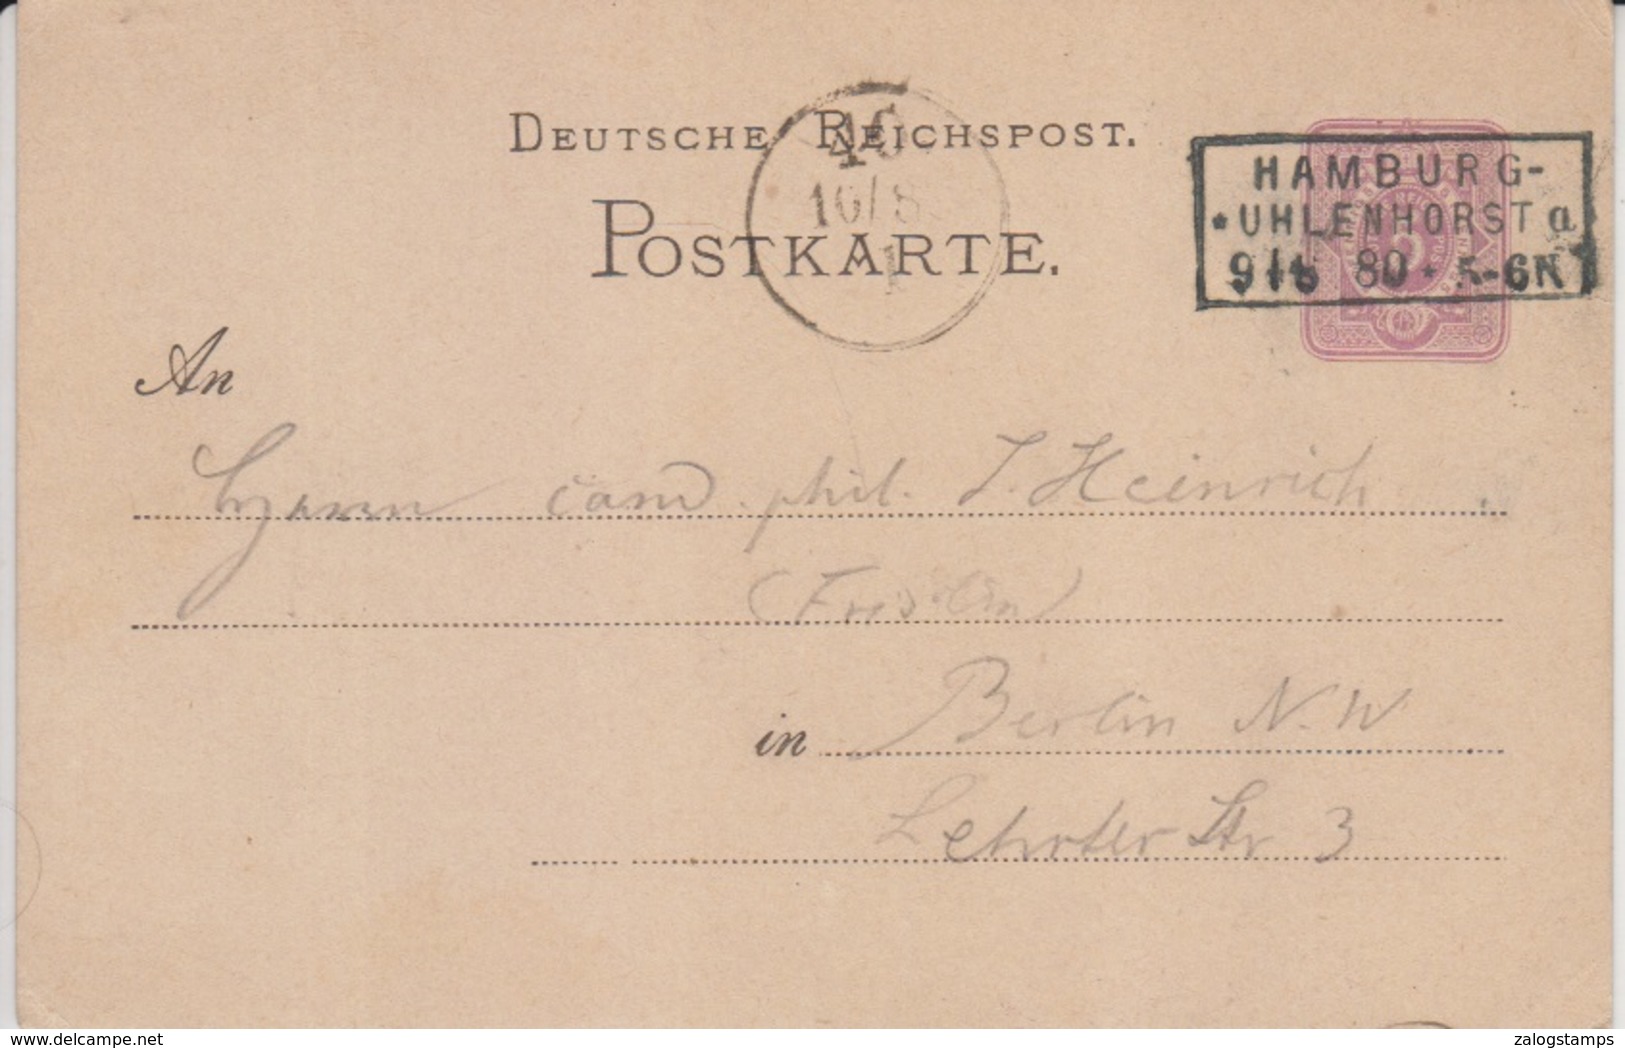 DEUTSCHE REICHSPOST.
POSTKARTE.
10/8
1
HAMBURG-
* UHLENHORST a
9/8 80 * 5-6N
An
Herrn cand. phil. J. Heinrich
in Berlin N.W
Lehrter Str 3
www.delcampe.net
zalogstamps